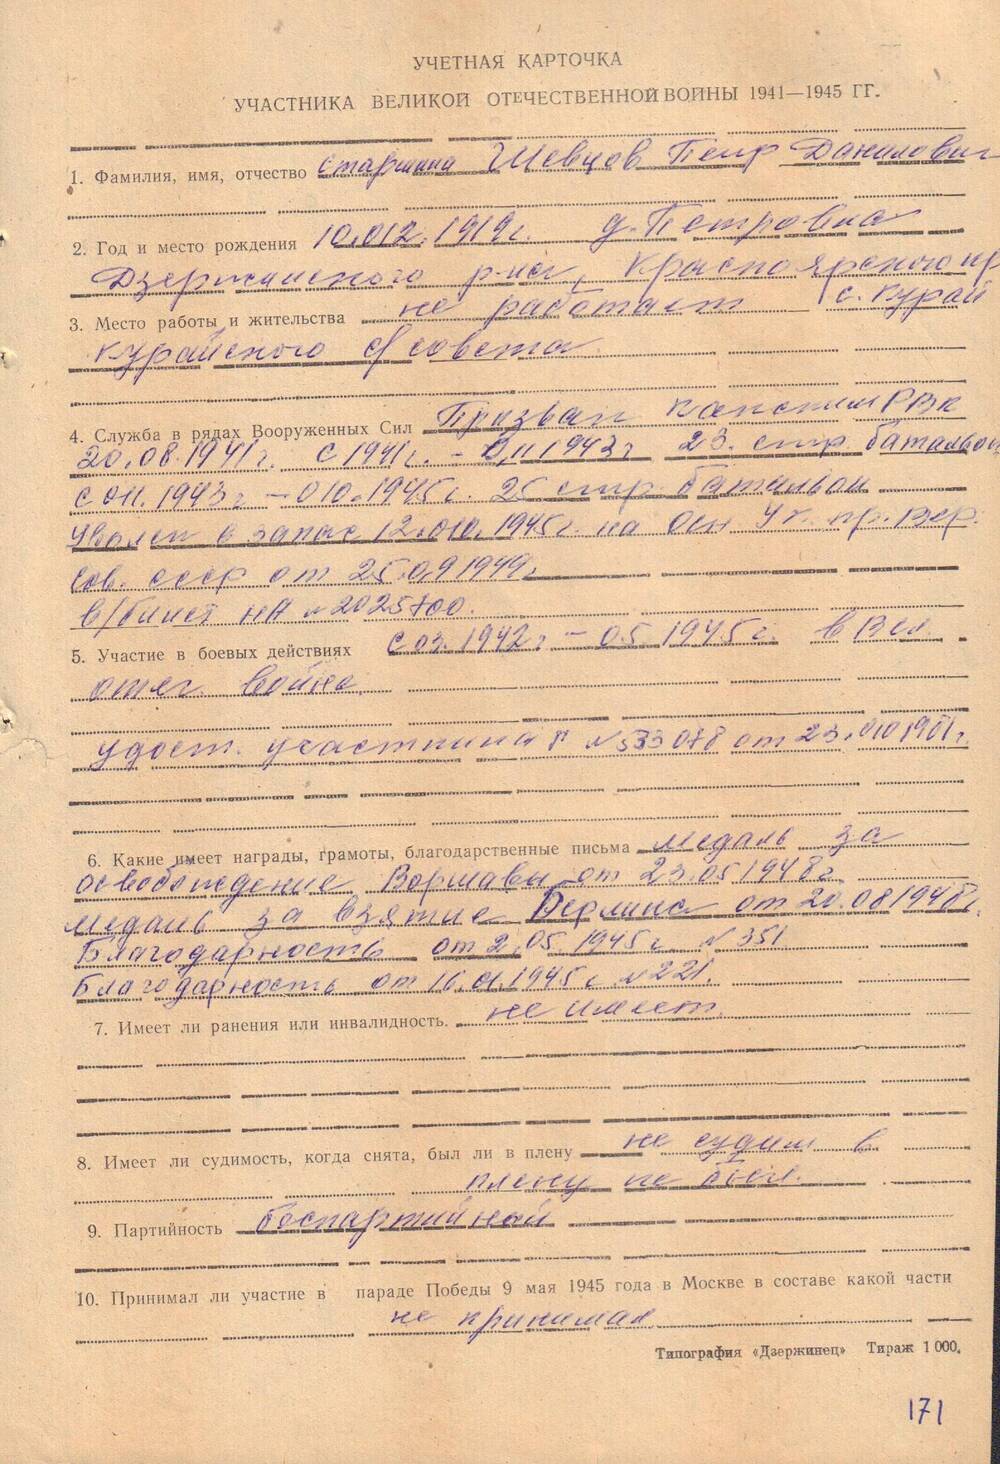 УЧЕТНАЯ КАРТОЧКА
УЧАСТНИКА ВЕЛИКОЙ ОТЕЧЕСТВЕННОЙ ВОЙНЫ 1941—1945 ГГ.
1. Фамилия, имя, отчество старшина Шевцов Петр Данилович
2. Год и место рождения 10.012.1919г. д. Петровка
Дзержинского р-на, Красноярского кр
3. Место работы и жительства не работает с. Курай
Курайского с/совета
4. Служба в рядах Вооруженных Сил Призван Канским РВК
20.08.1941г. с 1941г. – 011 1943г 23. стр. батальон
с 011.1943г – 010.1945г. 25 стр. батальон
Уволен в запас 12.010.1945г. на осн Ук. пр. Вер.
Сов. СССР от 25.0.9 1949г
в/билет НА № 2025700.
5. Участие в боевых действиях с 03.1942г – 05.1945г. в Вел.
отеч. войне
удост. участника Г № 533078 от 23.010 1981г.
6. Какие имеет награды, грамоты, благодарственные письма медаль за
освобождение Воршавы от 23.05 1948г
медаль за взятие Берлина от 20.08 1948г.
Благодарность от 2.05.1945г № 351
Благодарность от 16.01.1945г № 221.
7. Имеет ли ранения или инвалидность. не имеет.
8. Имеет ли судимость, когда снята, был ли в плену не судим в
плену не был.
9. Партийность беспартийный
10. Принимал ли участие в параде Победы 9 мая 1945 года в Москве в составе какой части
не принимал
Типография «Дзержинец» Тираж 1 000.
171